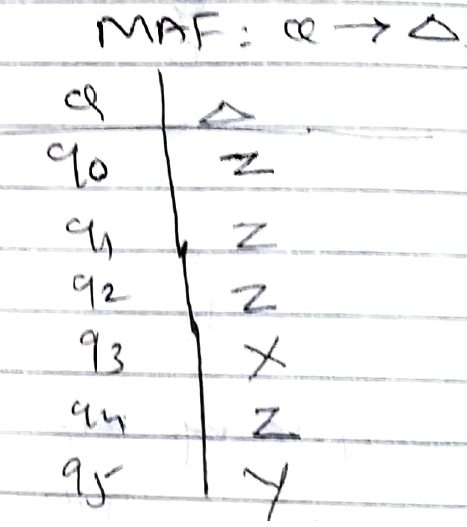 MAF: Q → Δ
Q Δ
q0 Z
q1 Z
q2 Z
q3 X
q4 Z
q5 Y